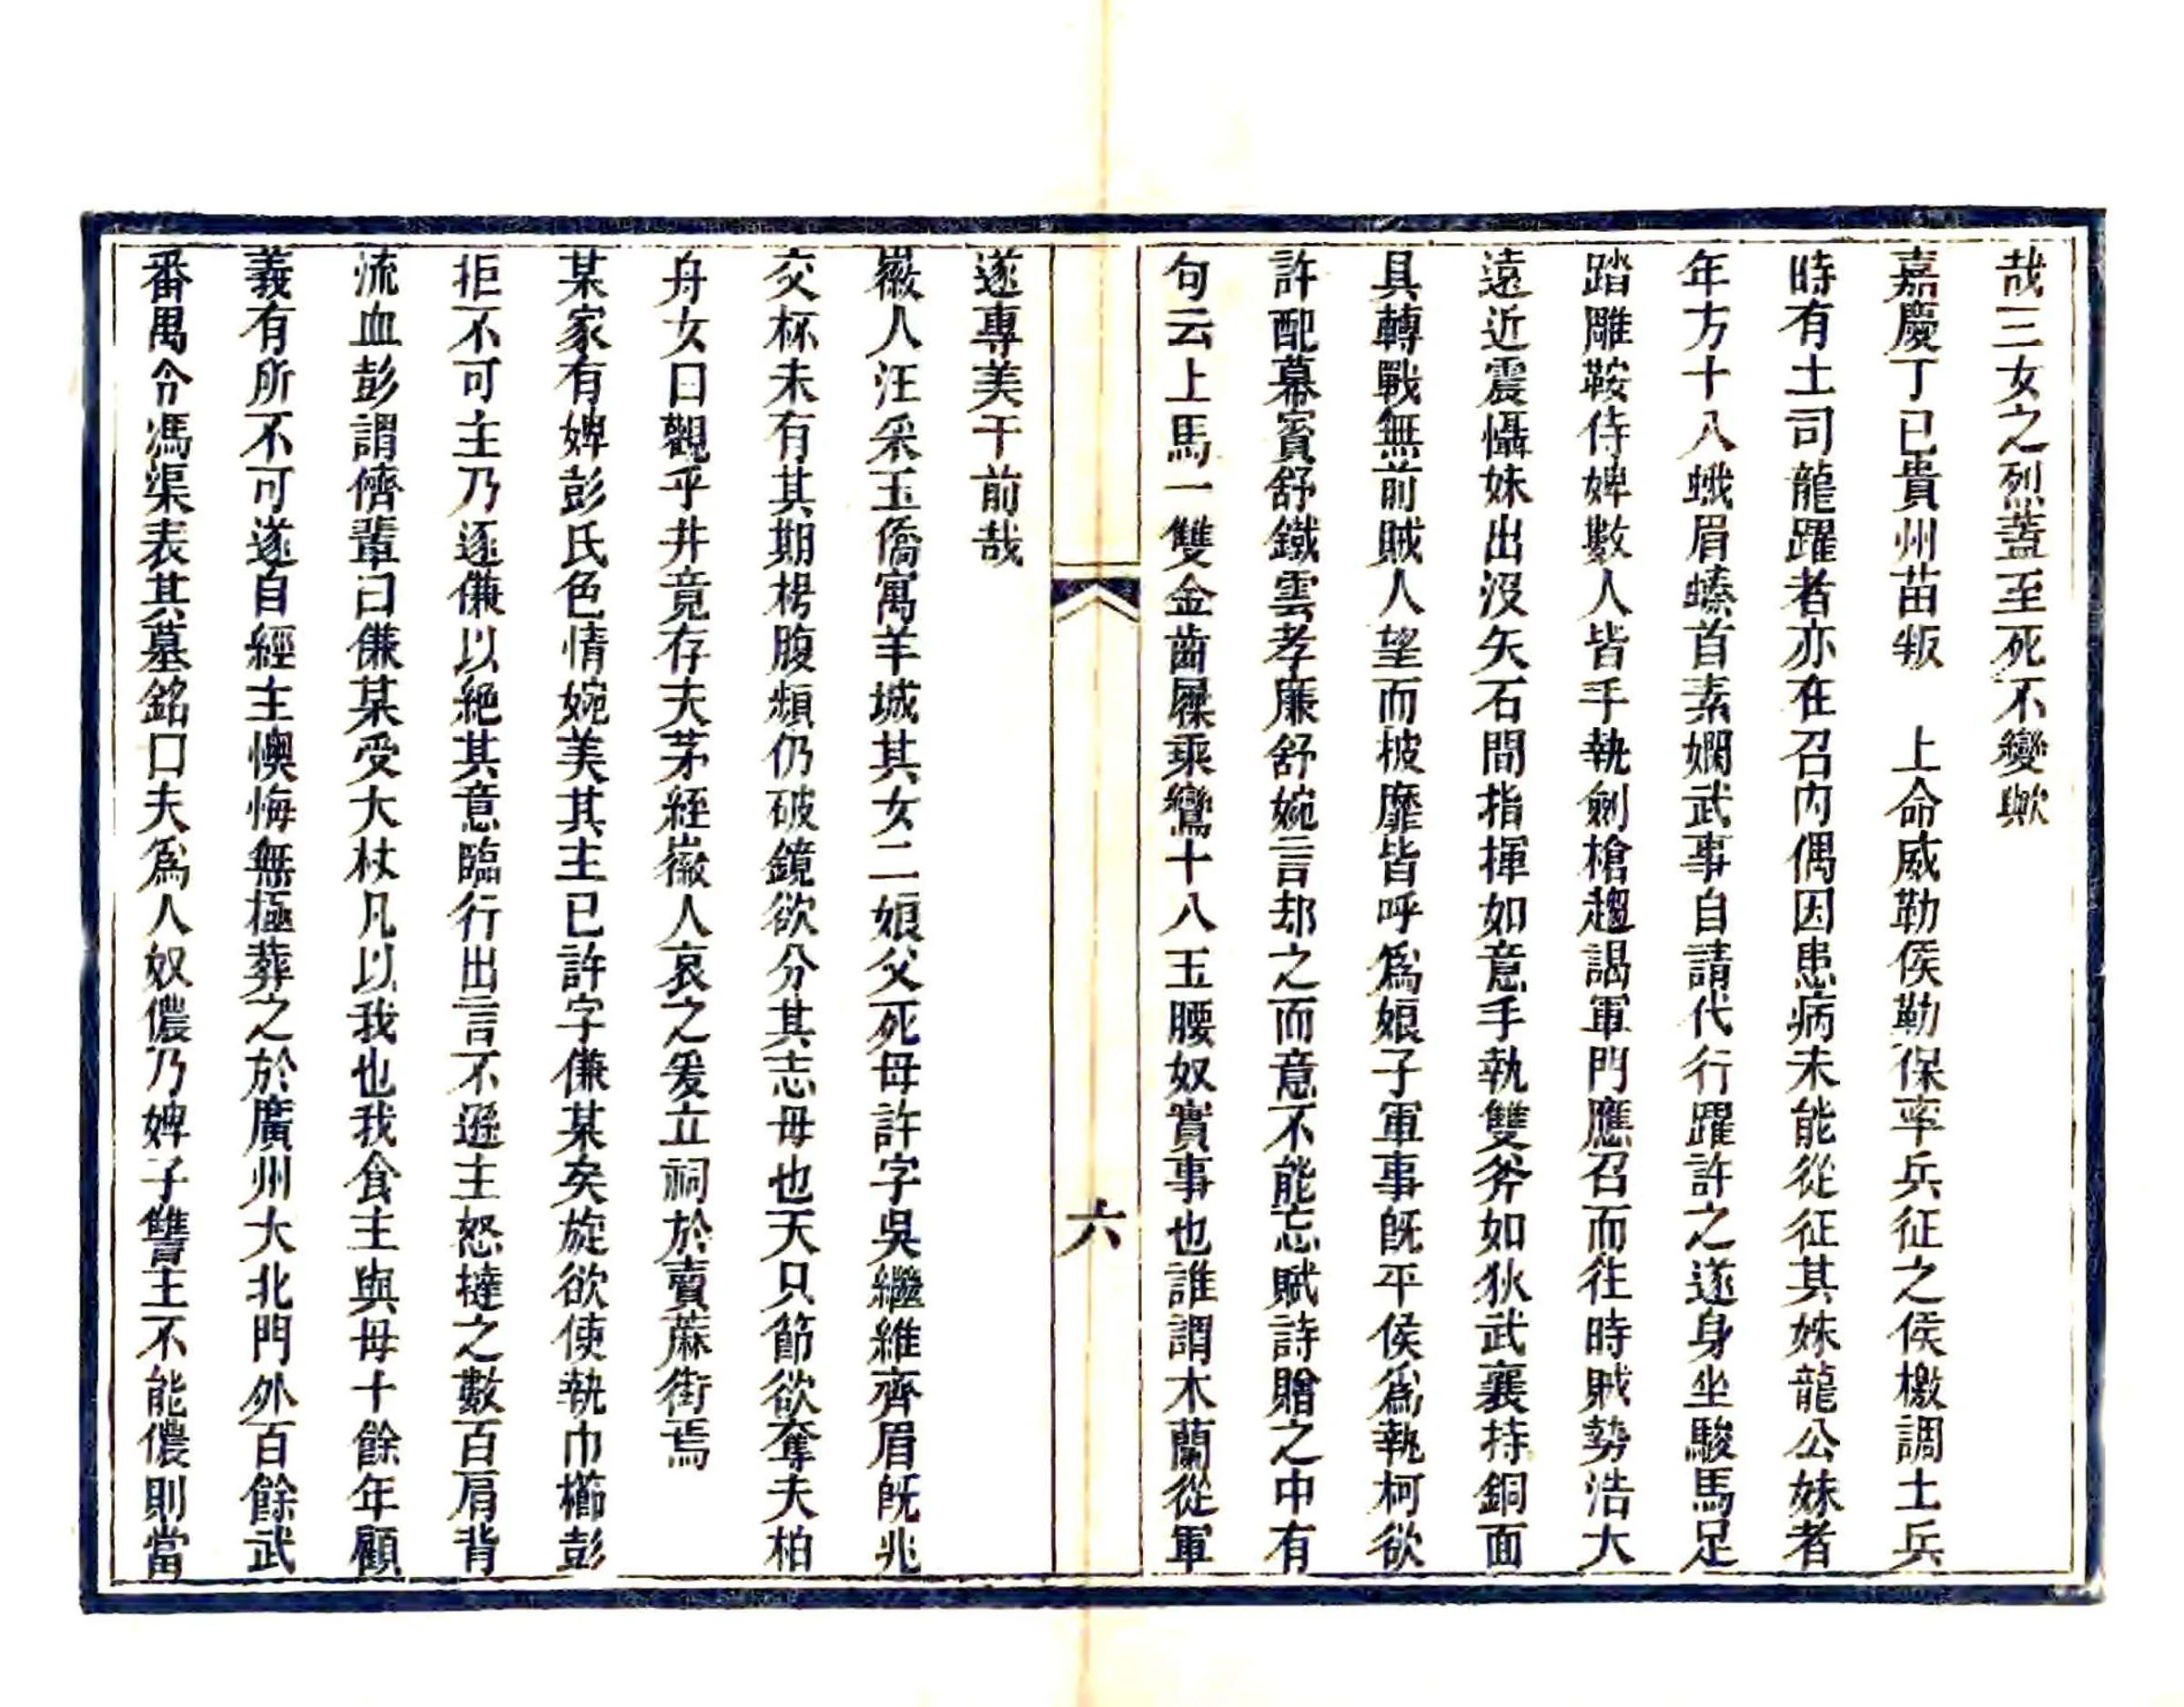 哉三女之烈蓋至死不變歟
嘉慶丁巳貴州苗叛　上命威勒侯勒保率兵征之侯檄調土兵
時有土司龍躍者亦在召內偶因患病未能從征其妹龍公妹者
年方十八蛾眉螓首素嫻武事自請代行躍許之遂身坐駿馬足
踏雕鞍侍婢數人皆手執劍槍趨謁軍門應召而往時賊勢浩大
遠近震懾妹出沒矢石間指揮如意手執雙斧如狄武襄持銅面
具轉戰無前賊人望而披靡皆呼爲娘子軍事旣平侯爲執柯欲
許配幕賓舒鐵雲孝廉舒婉言却之而意不能忘賦詩贈之中有
句云上馬一雙金齒屧乘鸞十八玉腰奴實事也誰謂木蘭從軍
六
遂專美于前哉
徽人汪采玉僑寓羊城其女二娘父死母許字吳繼維齊眉旣兆
交杯未有其期枵腹頻仍破鏡欲分其志母也天只節欲奪夫柏
舟女曰觀乎井竟存夫茅絰徽人哀之爰立祠於賣蔴街焉
某家有婢彭氏色情婉美其主已許字傔某矣旋欲使執巾櫛彭
拒不可主乃逐傔以絕其意臨行出言不遜主怒撻之數百肩背
流血彭謂儕輩曰傔某受大杖凡以我也我食主與母十餘年顧
義有所不可遂自經主懊悔無極葬之於廣州大北門外百餘武
番禺令馮渠表其墓銘曰夫爲人奴儂乃婢子讐主不能儂則當